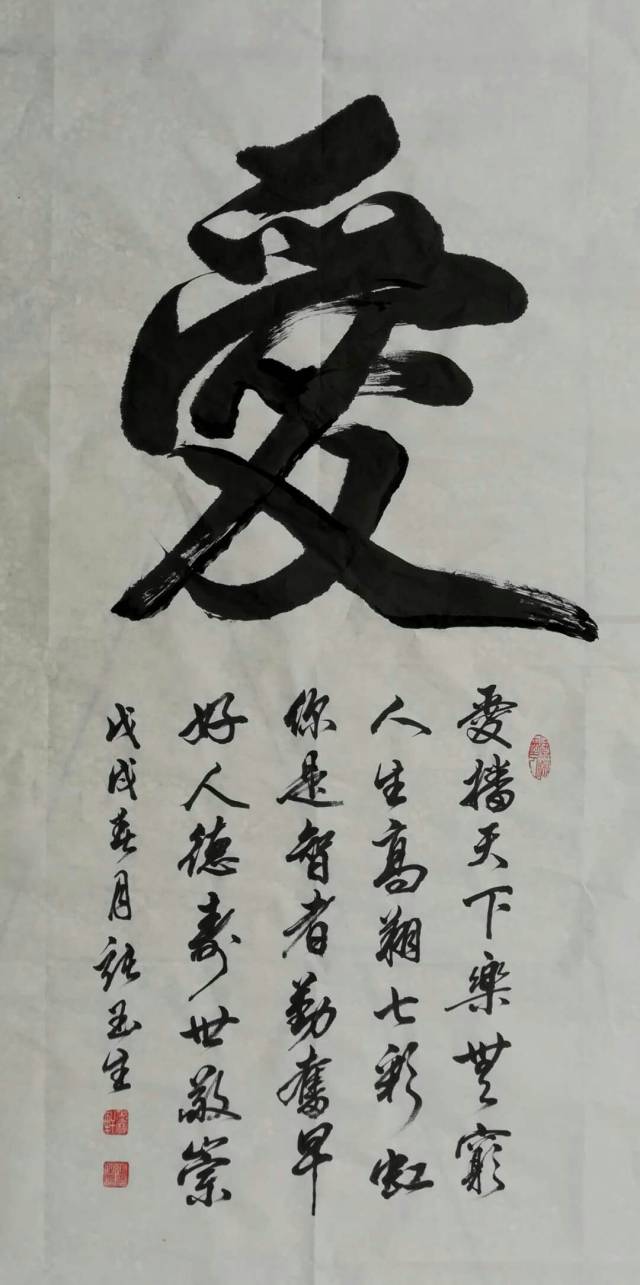 愛
愛播天下樂無窮
人生高翔七彩虹
你是智者勤奮早
好人德壽世敬崇
戊戌春月 玉生